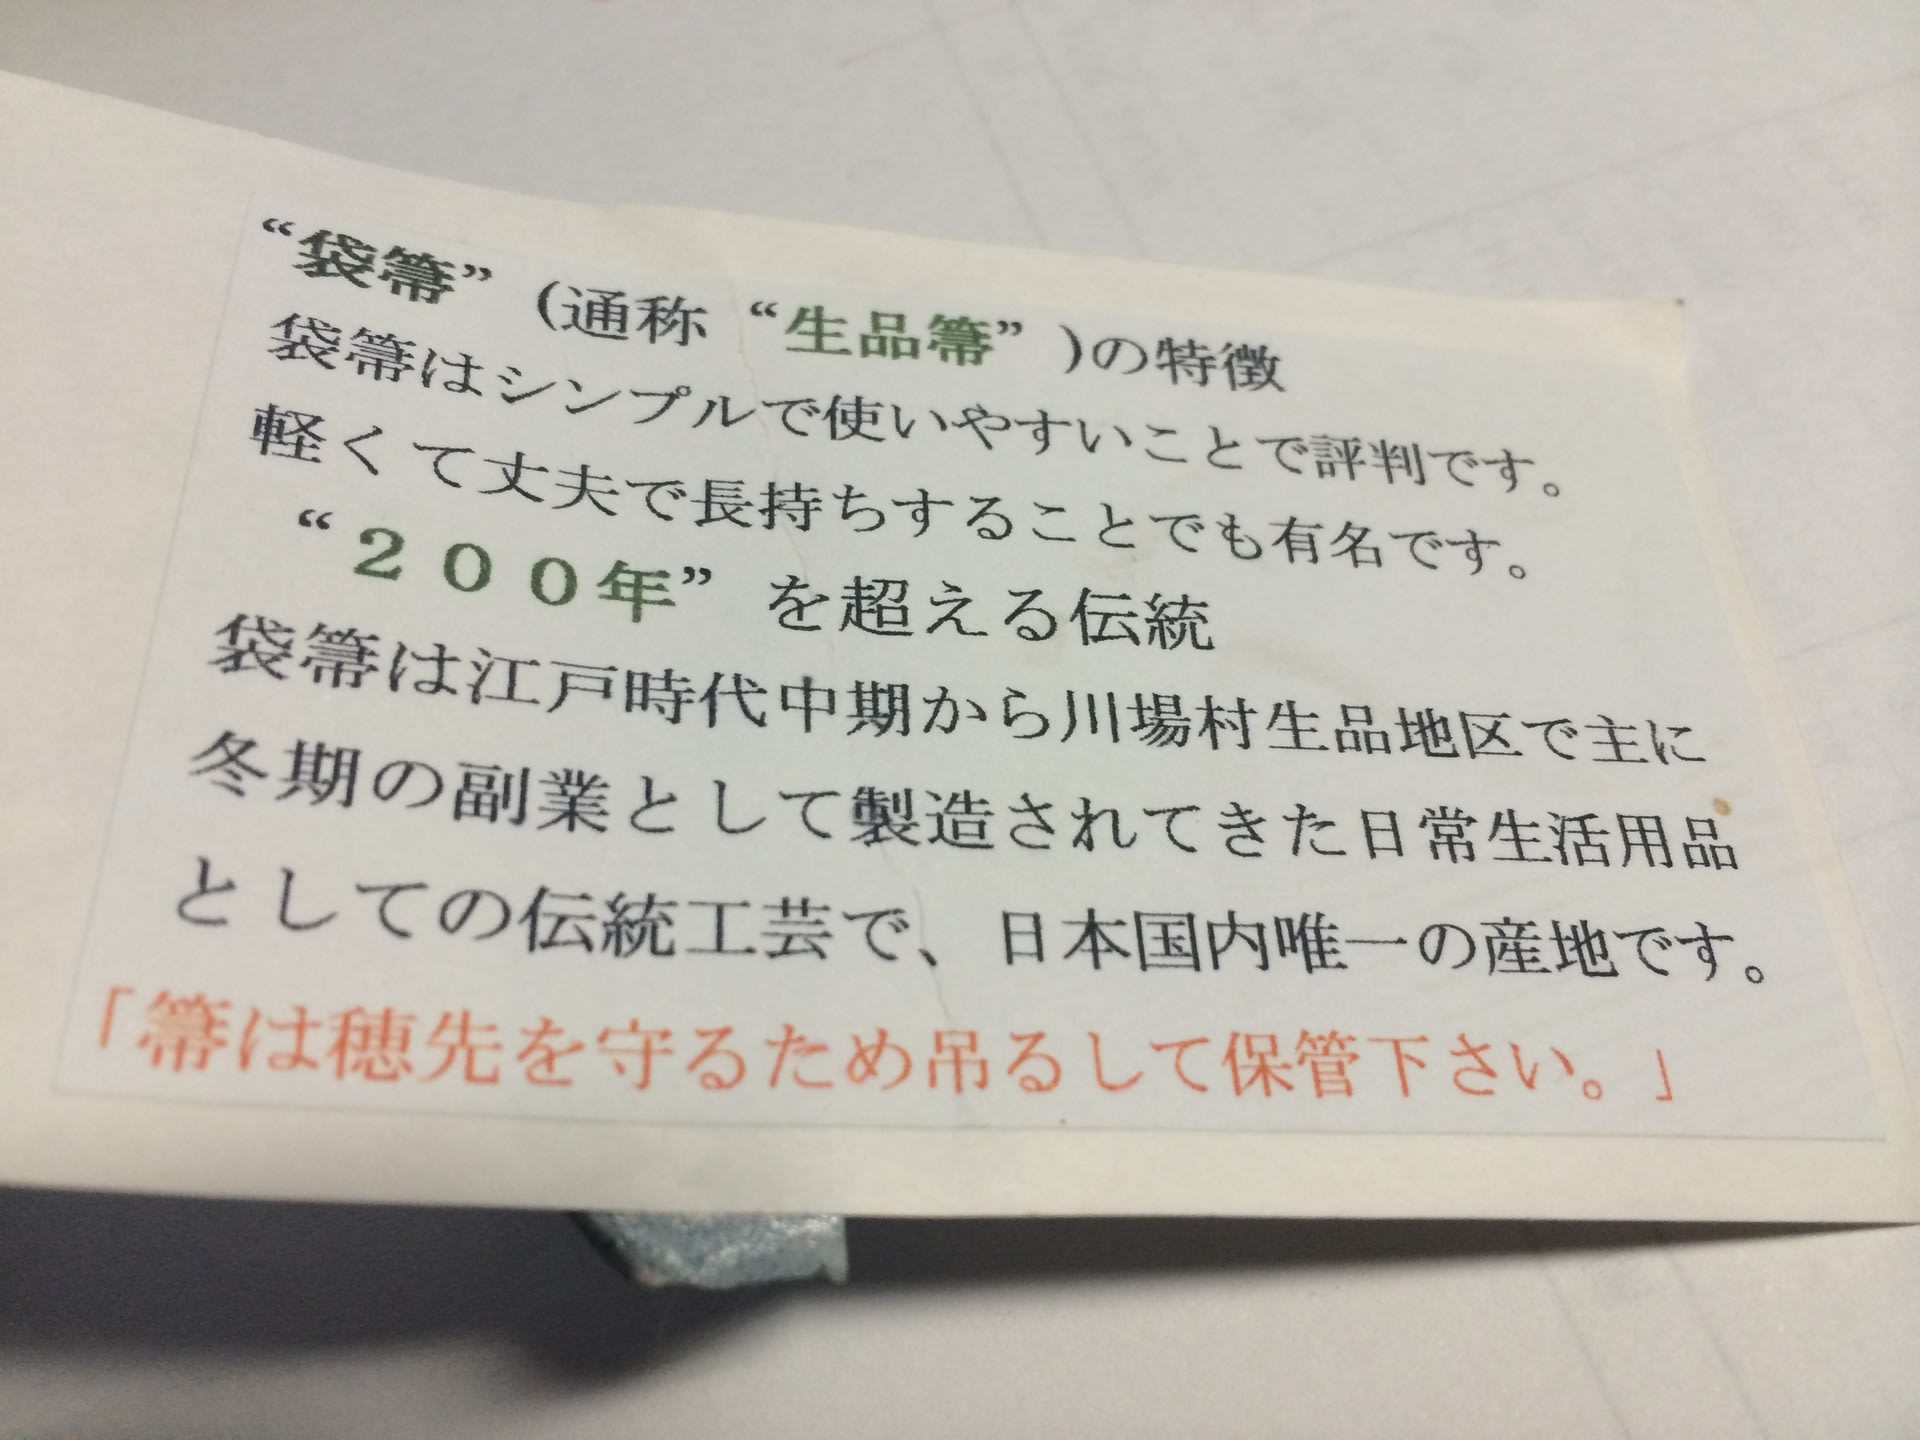 “袋箒” (通称 “生品箒” )の特徴
袋箒はシンプルで使いやすいことで評判です。
軽くて丈夫で長持ちすることでも有名です。
“２００年” を超える伝統
袋箒は江戸時代中期から川場村生品地区で主に
冬期の副業として製造されてきた日常生活用品
としての伝統工芸で、日本国内唯一の産地です。
「箒は穂先を守るため吊るして保管下さい。」